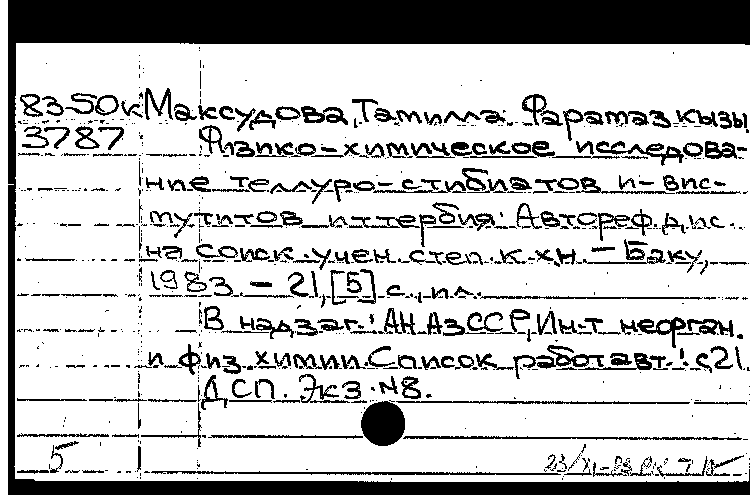 83-50к Максудова, Тамилла Фарамаз кызы
3787 Физико-химическое исследова-
ние теллуро-стибиатов и вис-
мутитов иттербия: Автореф. дис.
на соиск. учен. степ. к. х.н. — Баку,
1983. — 21, [5] с., ил.
В надзаг.: АН АзССР, Ин-т неорган.
и физ. химии. Список работ авт.: с.21.
ДСП. Экз. №8.
5 23/XI-83